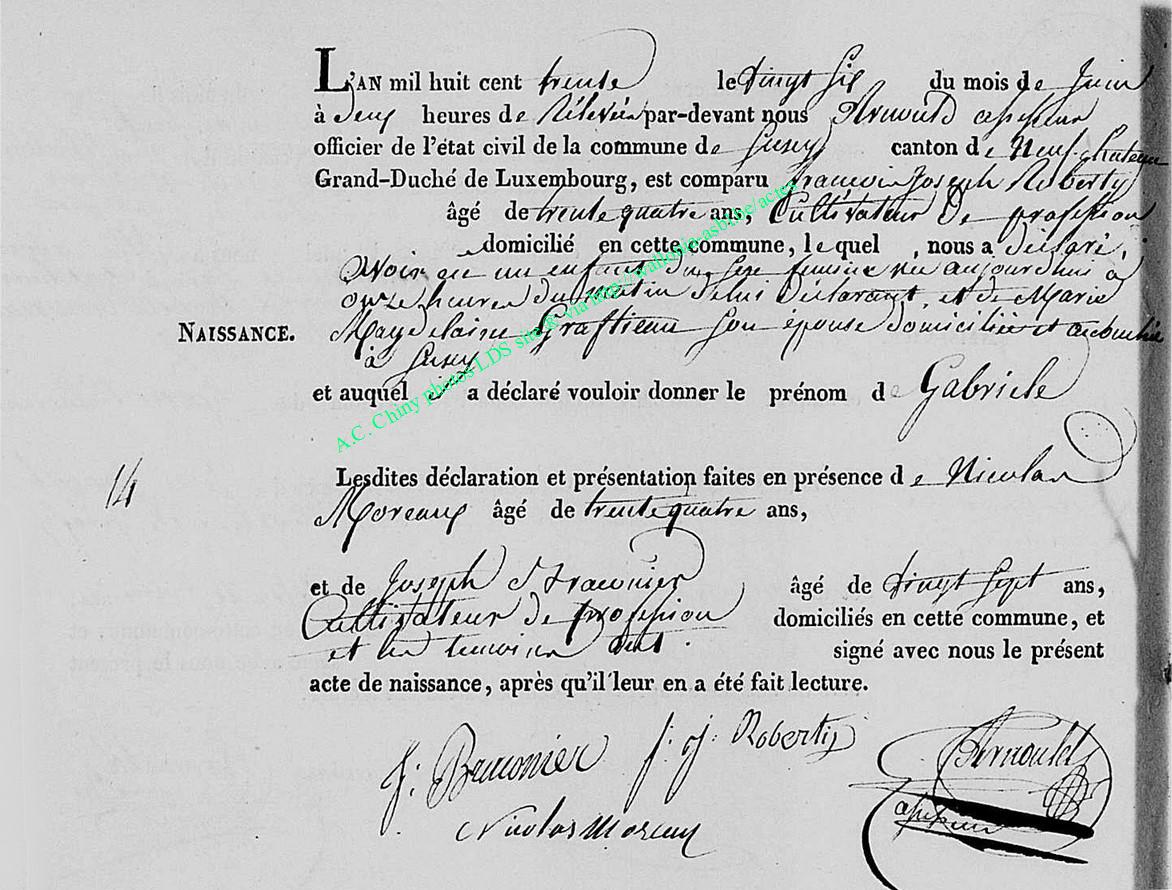 L'AN mil huit cent trente le vingt six du mois de Juin
à deux heures de Rélevée par-devant nous Arnould assesseur
officier de l'état civil de la commune de Suxy canton de Neufchateau
Grand-Duché de Luxembourg, est comparu francois Joseph Roberty
âgé de trente quatre ans, Cultivateur de profession
domicilié en cette commune, le quel nous a déclaré,
avoir que un enfant du sexe feminin né aujourdhui à
onze heures du matin de lui déclarant, et de Marie
NAISSANCE. Magdelaine Graftieau son épouse domiciliée et accouchée
à Suxy
et auquel il a déclaré vouloir donner le prénom de Gabriele
14 Lesdites déclaration et présentation faites en présence de Nicolas
Moreaux âgé de trente quatre ans,
et de Joseph âgé de vingt sept ans,
Cultivateur de profession domiciliés en cette commune, et
et les temoins ont signé avec nous le présent
acte de naissance, après qu'il leur en a été fait lecture.
J: f: j: Roberty Arnould
Nicolas Moreaux assesseur
A.C. Chiny photos LDS site & via http://wallonia-asbl.be/actes